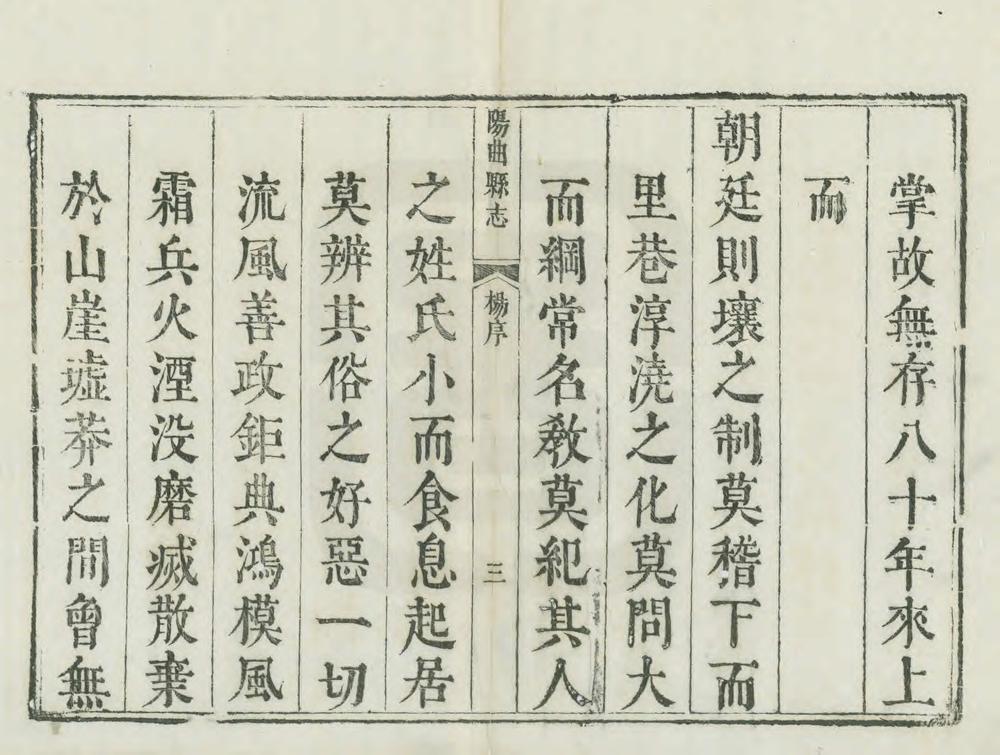 掌故無存八十年來上
而
朝廷則壤之制莫稽下而
里巷淳澆之化莫問大
而綱常名教莫紀其人
陽曲縣志 楊序 三
之姓氏小而食息起居
莫辨其俗之好惡一切
流風善政鉅典鴻模風
霜兵火湮没磨滅散棄
於山崖墟莽之間曾無